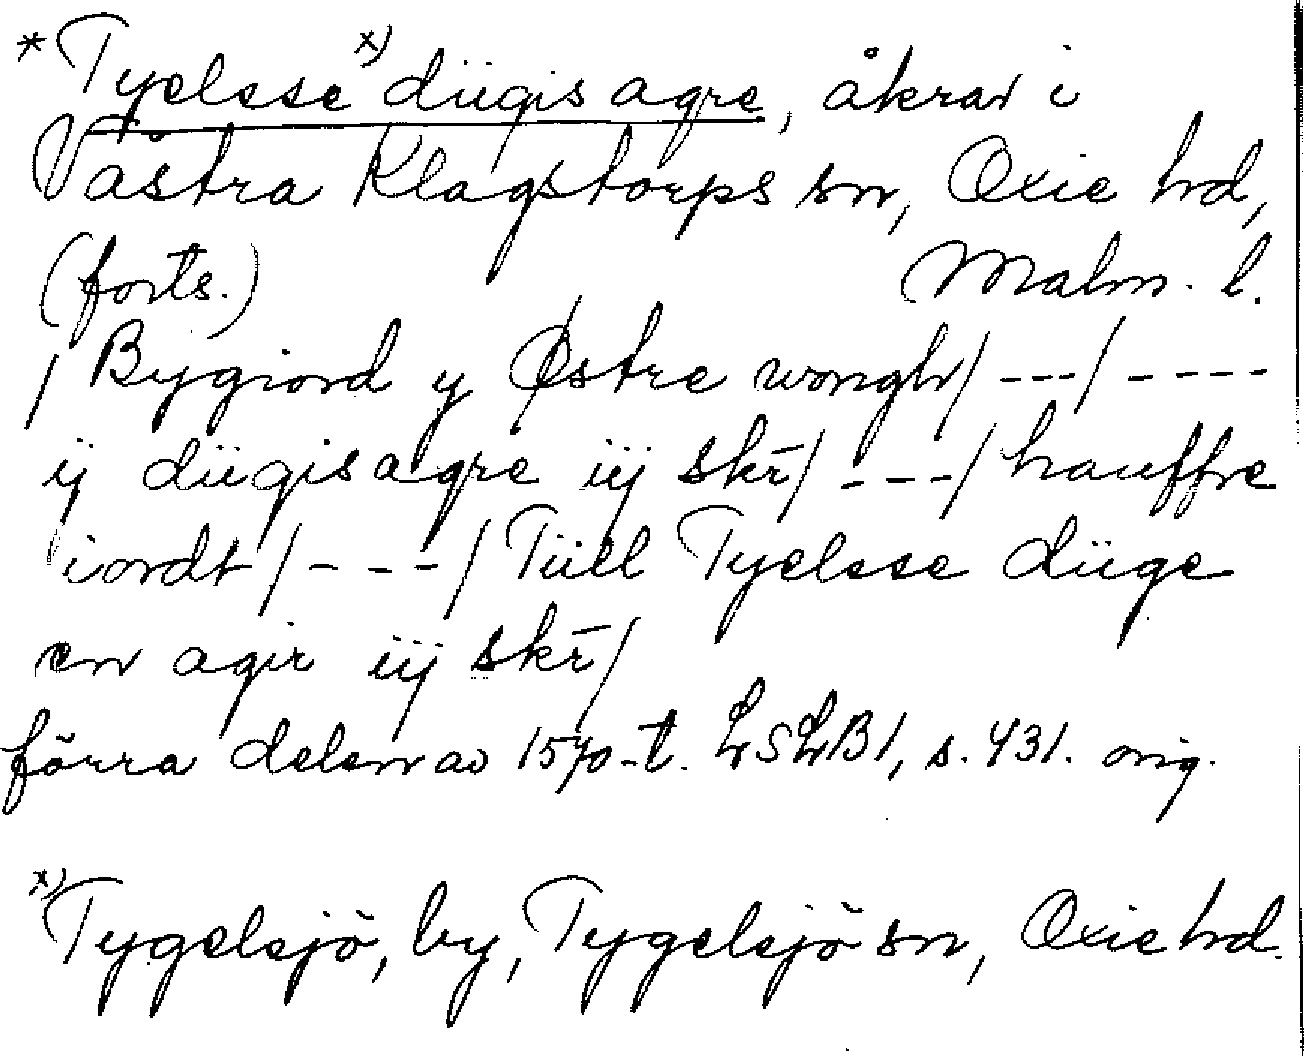 * Tyelsse x) dügis agre, åkrar i
Västra Klagstorps sn, Oxie hd,
(forts.) Malm. l.
/ Bygiord y Østre wongh/ ---/ ----
ij dügis agre iij skr̄/ ---/ hauffre
iordt /---/ Tüll Tyelsse düge
en agir iij skr̄/
förra delen av 1570-t. LSLB1, s. 431. orig.
x) Tygelsjö, by, Tygelsjö sn, Oxie hd.